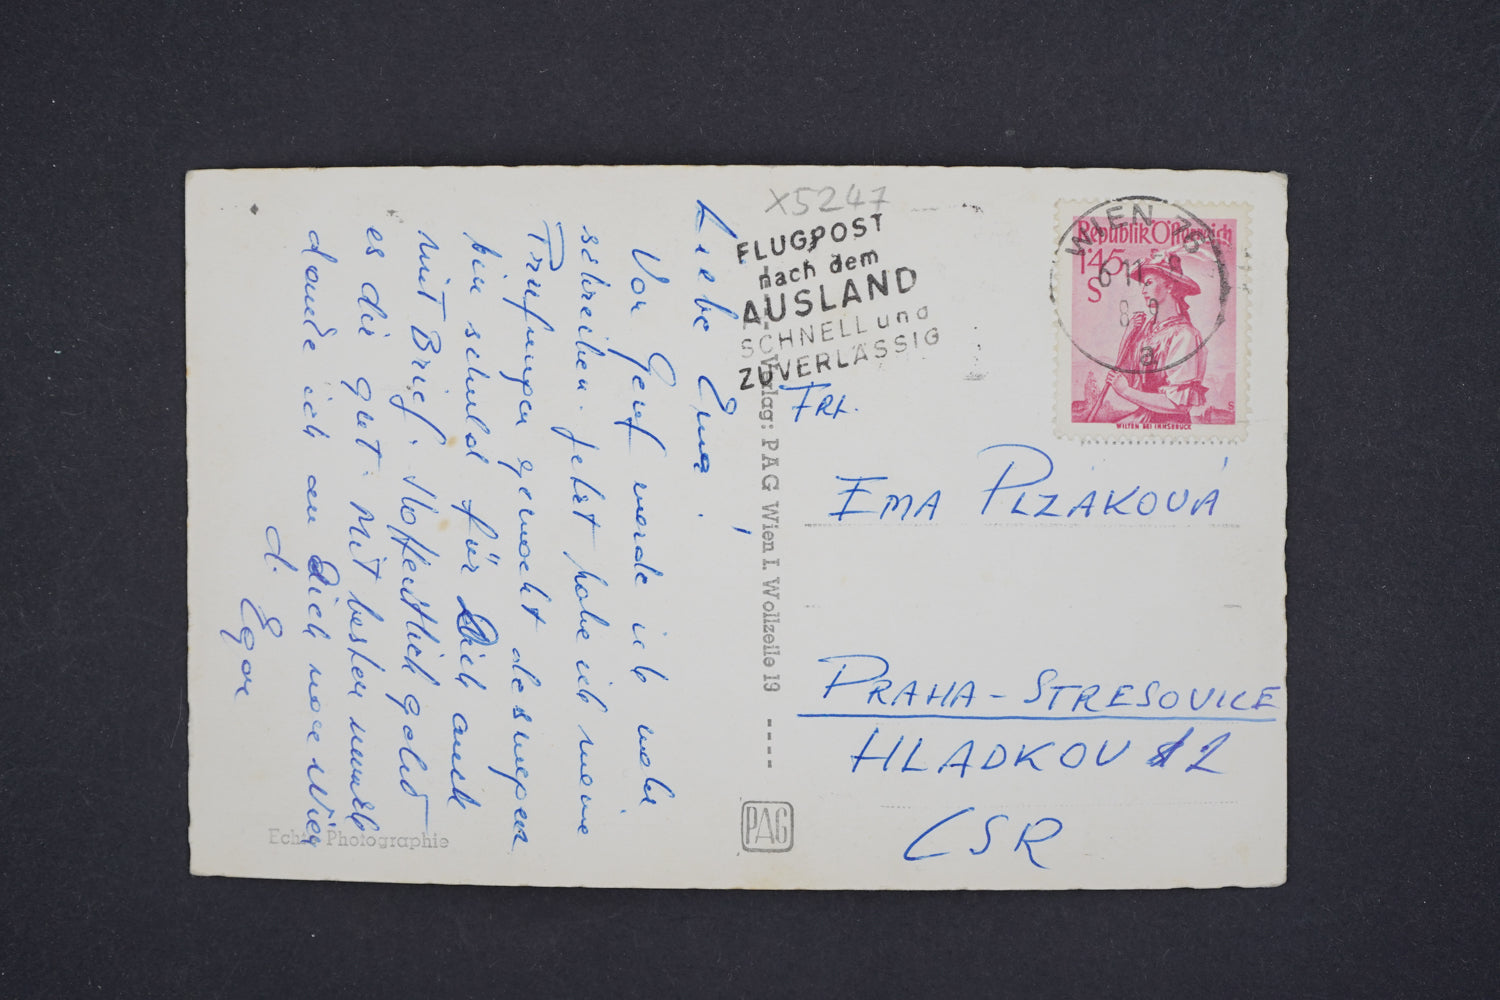 Liebe Ema,
Vor Genf werde ich wohl
schreiben. Jetzt habe ich meine
Prüfungen gemacht deswegen
bin schuld für Dich auch
mit Brief. Hoffentlich geht
es dir gut. Mit besten
danke ich an Dich
d. Egon
Echte Photographie
X5247
FLUGPOST
nach dem
AUSLAND
SCHNELL und
ZUVERLÄSSIG
Verlag: PAG Wien I. Wollzeile 19
PAG
WIEN 76
6 11
8-9
a
Republik Österreich
1·45
S
WILTEN BEI INNSBRUCK
FRL.
EMA PLZÁKOVÁ
PRAHA - STRESOVICE
HLADKOV 12
ČSR